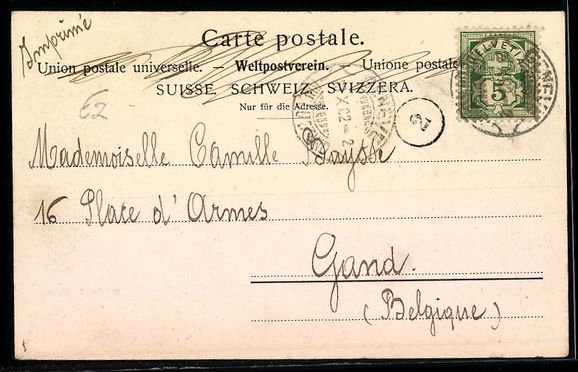 Imprimé
Carte postale.
Union postale universelle. — Weltpostverein. — Unione postale
SUISSE. SCHWEIZ. SVIZZERA.
Nur für die Adresse.
62-
HELVETIA
5
Mademoiselle Camille Buysse
16 Place d'Armes
Gand.
(Belgique)